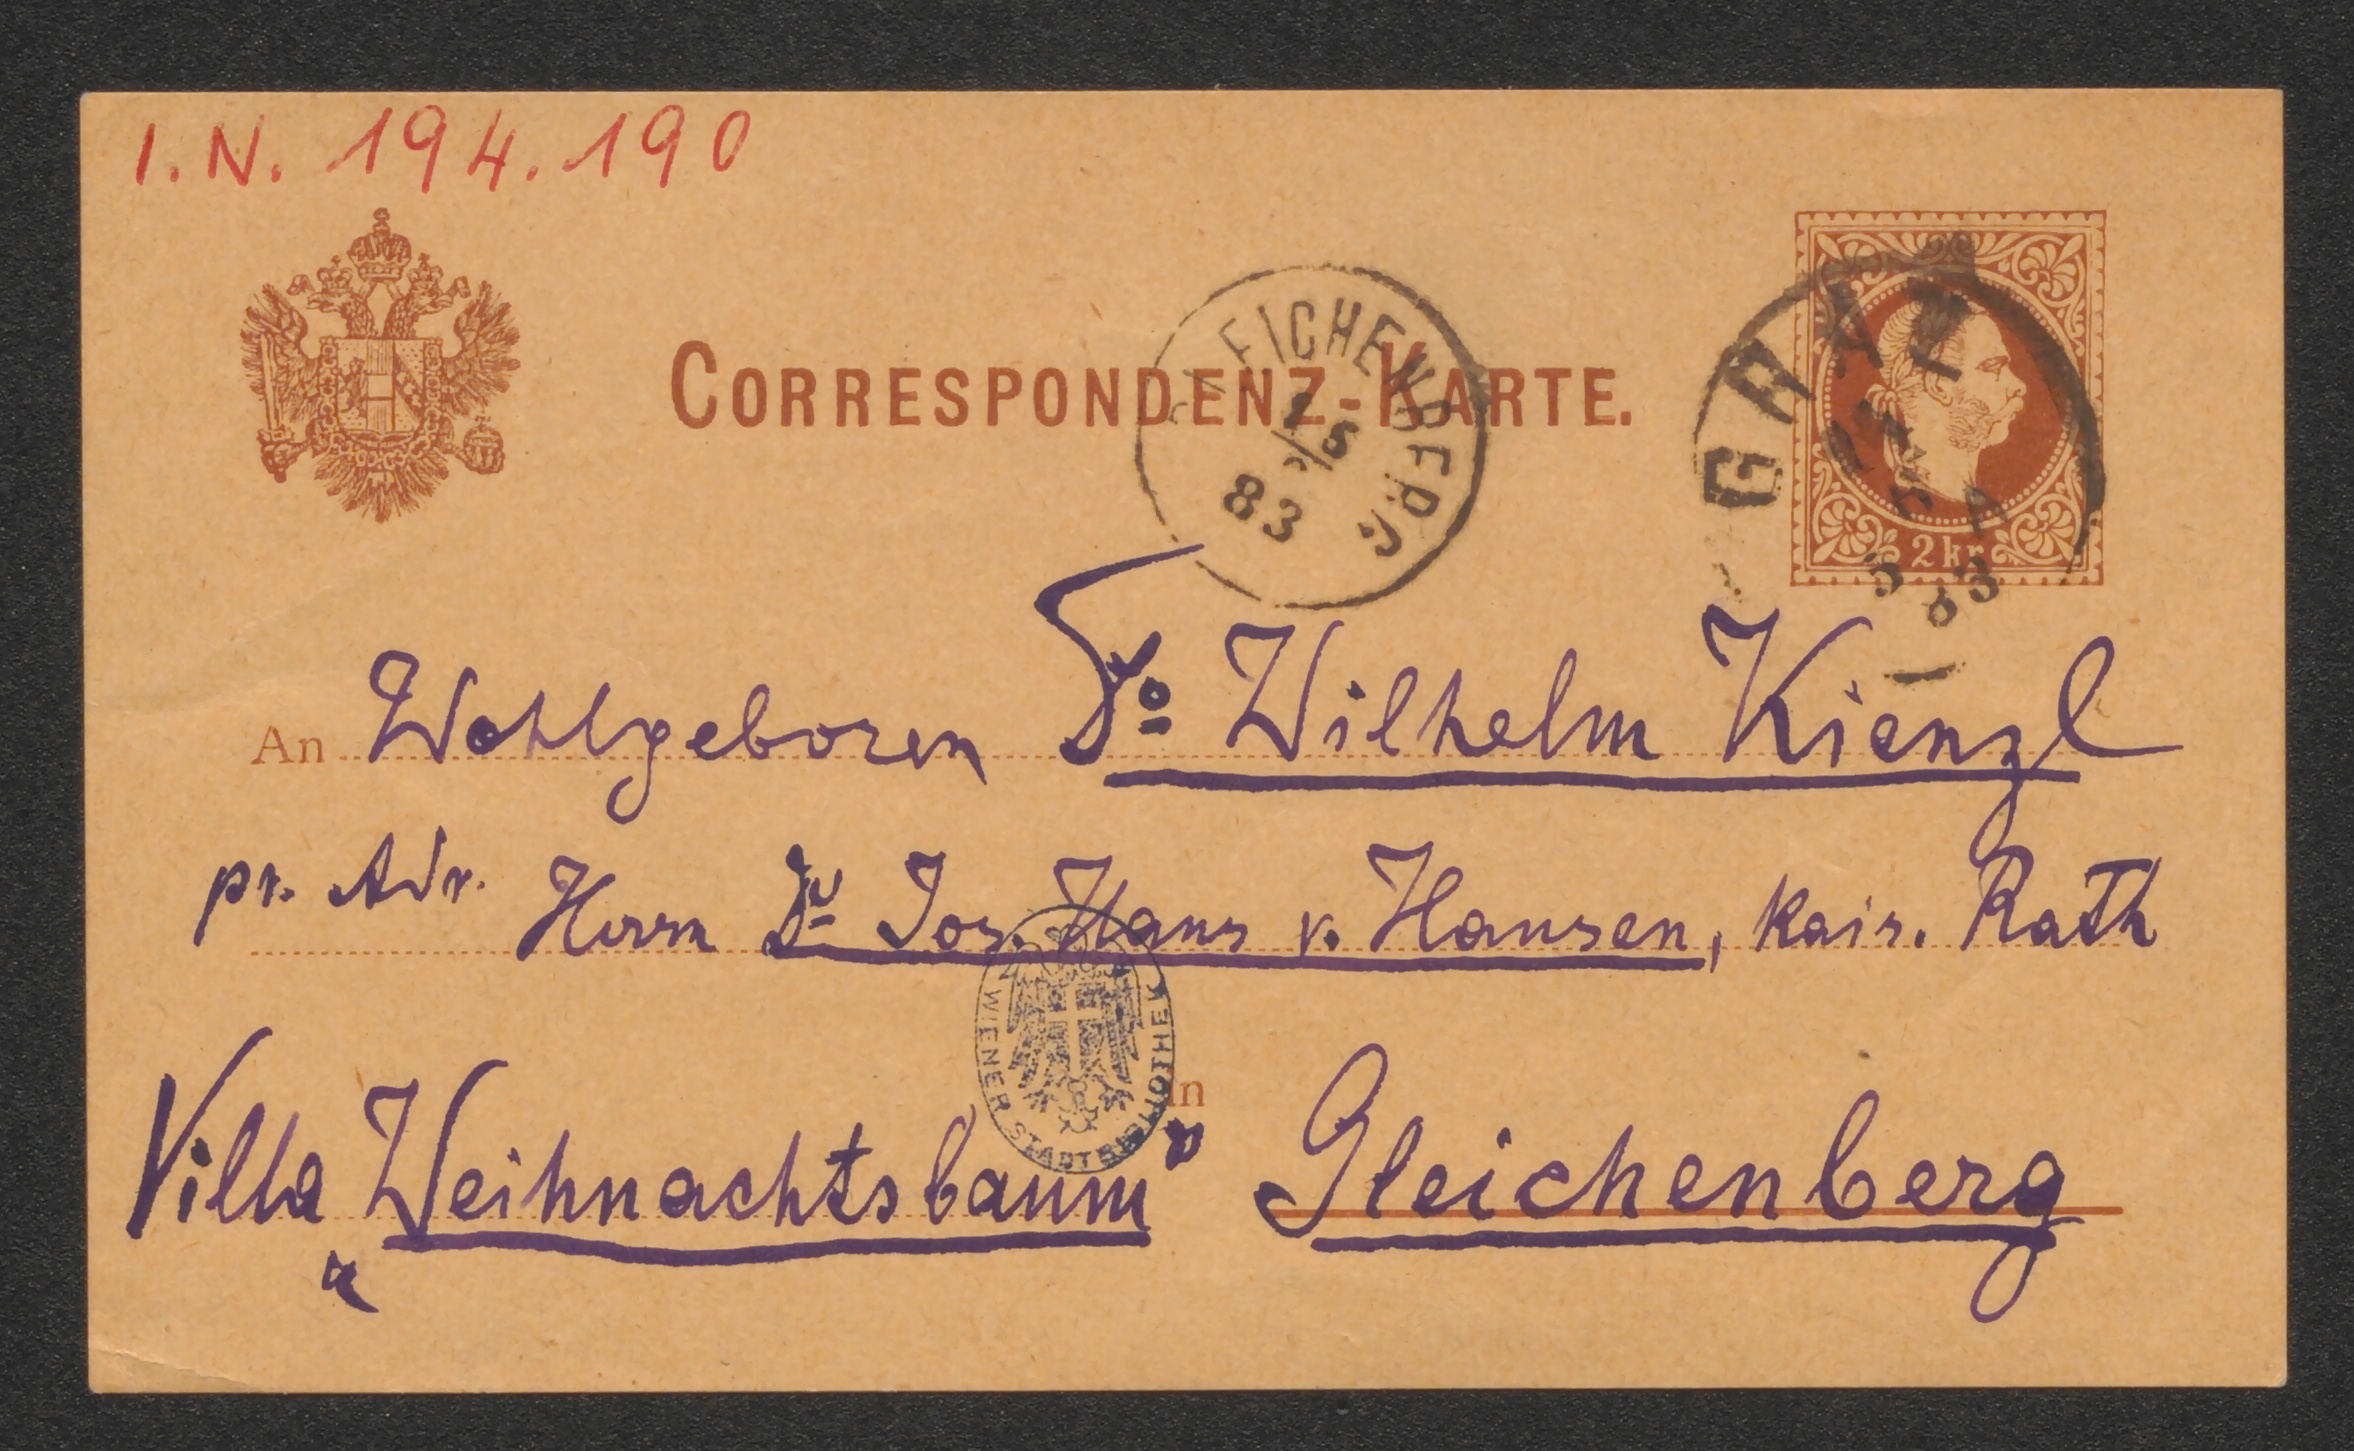 I.N. 194.190
CORRESPONDENZ-KARTE.
GLEICHENBERG
1/5
83
GRAZ
83
2 kr
An Wohlgeboren Dr Wilhelm Kienzl
pr. Adr. Herrn Dr Jos. Hans v. Hausen, kais. Rath
WIENER STADTBIBLIOTHEK
in
Villa „Weihnachtsbaum“ Gleichenberg